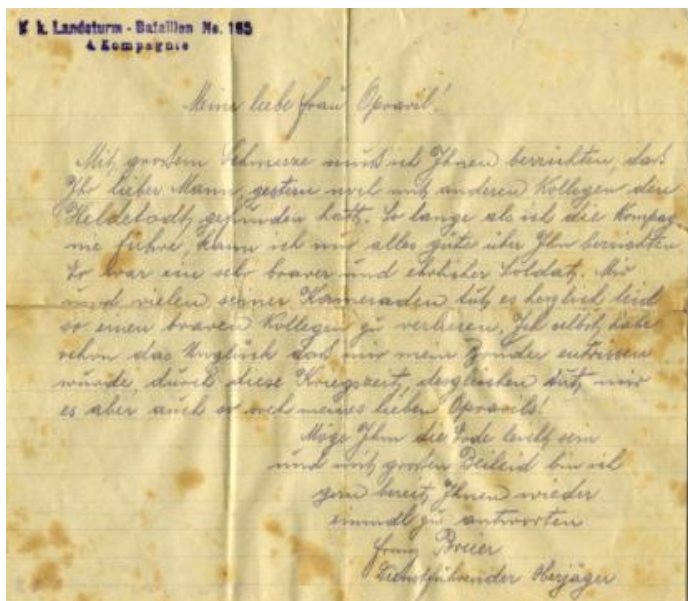 K. k. Landsturm - Bataillon No. 165
4 Kompagnie
Meine liebe Frau Opravil!
Mit großem Schmerze muß ich Ihnen berrichten, das
Ihr lieber Mann, gestern noch mit anderen Kollegen den
Heldetodt gefunden hatt. So lange als ich die Kompag-
nie führe, kann ich nur alles gute über Ihm berrichten.
Er war ein sehr braver und ehrlicher Soldat. Mir
und vielen seiner Kameraden tut es herzlich leid
so einen braven Kollegen zu verlieren. Ich selbst habe
schon das Unglück das mir mein Bruder entrissen
wurde, durch diese Kriegszeit, desgleichen tut mir
es aber auch so weh meines lieben Opravils!
Möge Ihm die Erde leicht sein
und mit großen Beileid bin ich
gern bereit Ihnen wieder
einmal zu antworten
Franz Breier
Dienstführender Oberjäger